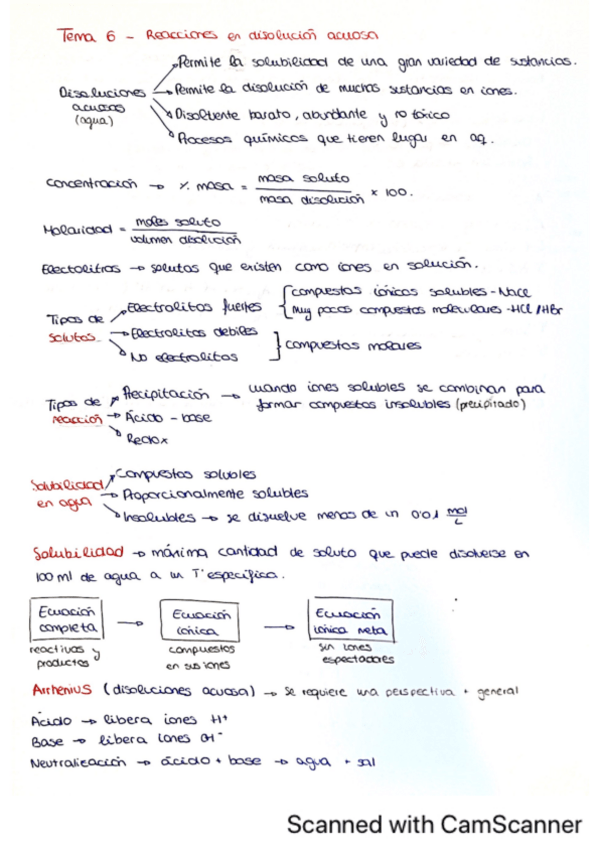 Tema 6 - Reacciones en disolución acuosa
Disoluciones acuosas (agua)
Permite la solubilidad de una gran variedad de sustancias.
Permite la disolución de muchas sustancias en iones.
Disolvente barato, abundante y no tóxico
Procesos químicos que tienen lugar en aq.
Concentración → % masa = masa soluto / masa disolución × 100.
Molaridad = moles soluto / volumen disolución
Electolitros → solutos que existen como iones en solución.
Tipos de solutos
Electrolitos fuertes
compuestos iónicos solubles - NaCl
Muy pocos compuestos moleculares - HCl / HBr
Electrolitos débiles
No electrolitos
compuestos molares
Tipos de reacción
Precipitación → cuando iones solubles se combinan para
formar compuestos insolubles (precipitado)
Ácido - base
Redox
Solubilidad en agua
Compuestos solubles
Proporcionalmente solubles
Insolubles → se disuelve menos de un 0'01 mol/L
Solubilidad → máxima cantidad de soluto que puede disolverse en
100 ml de agua a un Tª específica.
Ecuación completa → Ecuación iónica → Ecuación iónica neta
reactivos y productos
compuestos en sus iones
sin iones espectadores
Arrhenius (disoluciones acuosa) → se requiere una perspectiva + general
Ácido → libera iones H⁺
Base → libera iones OH⁻
Neutralización → ácido + base → agua + sal
Scanned with CamScanner